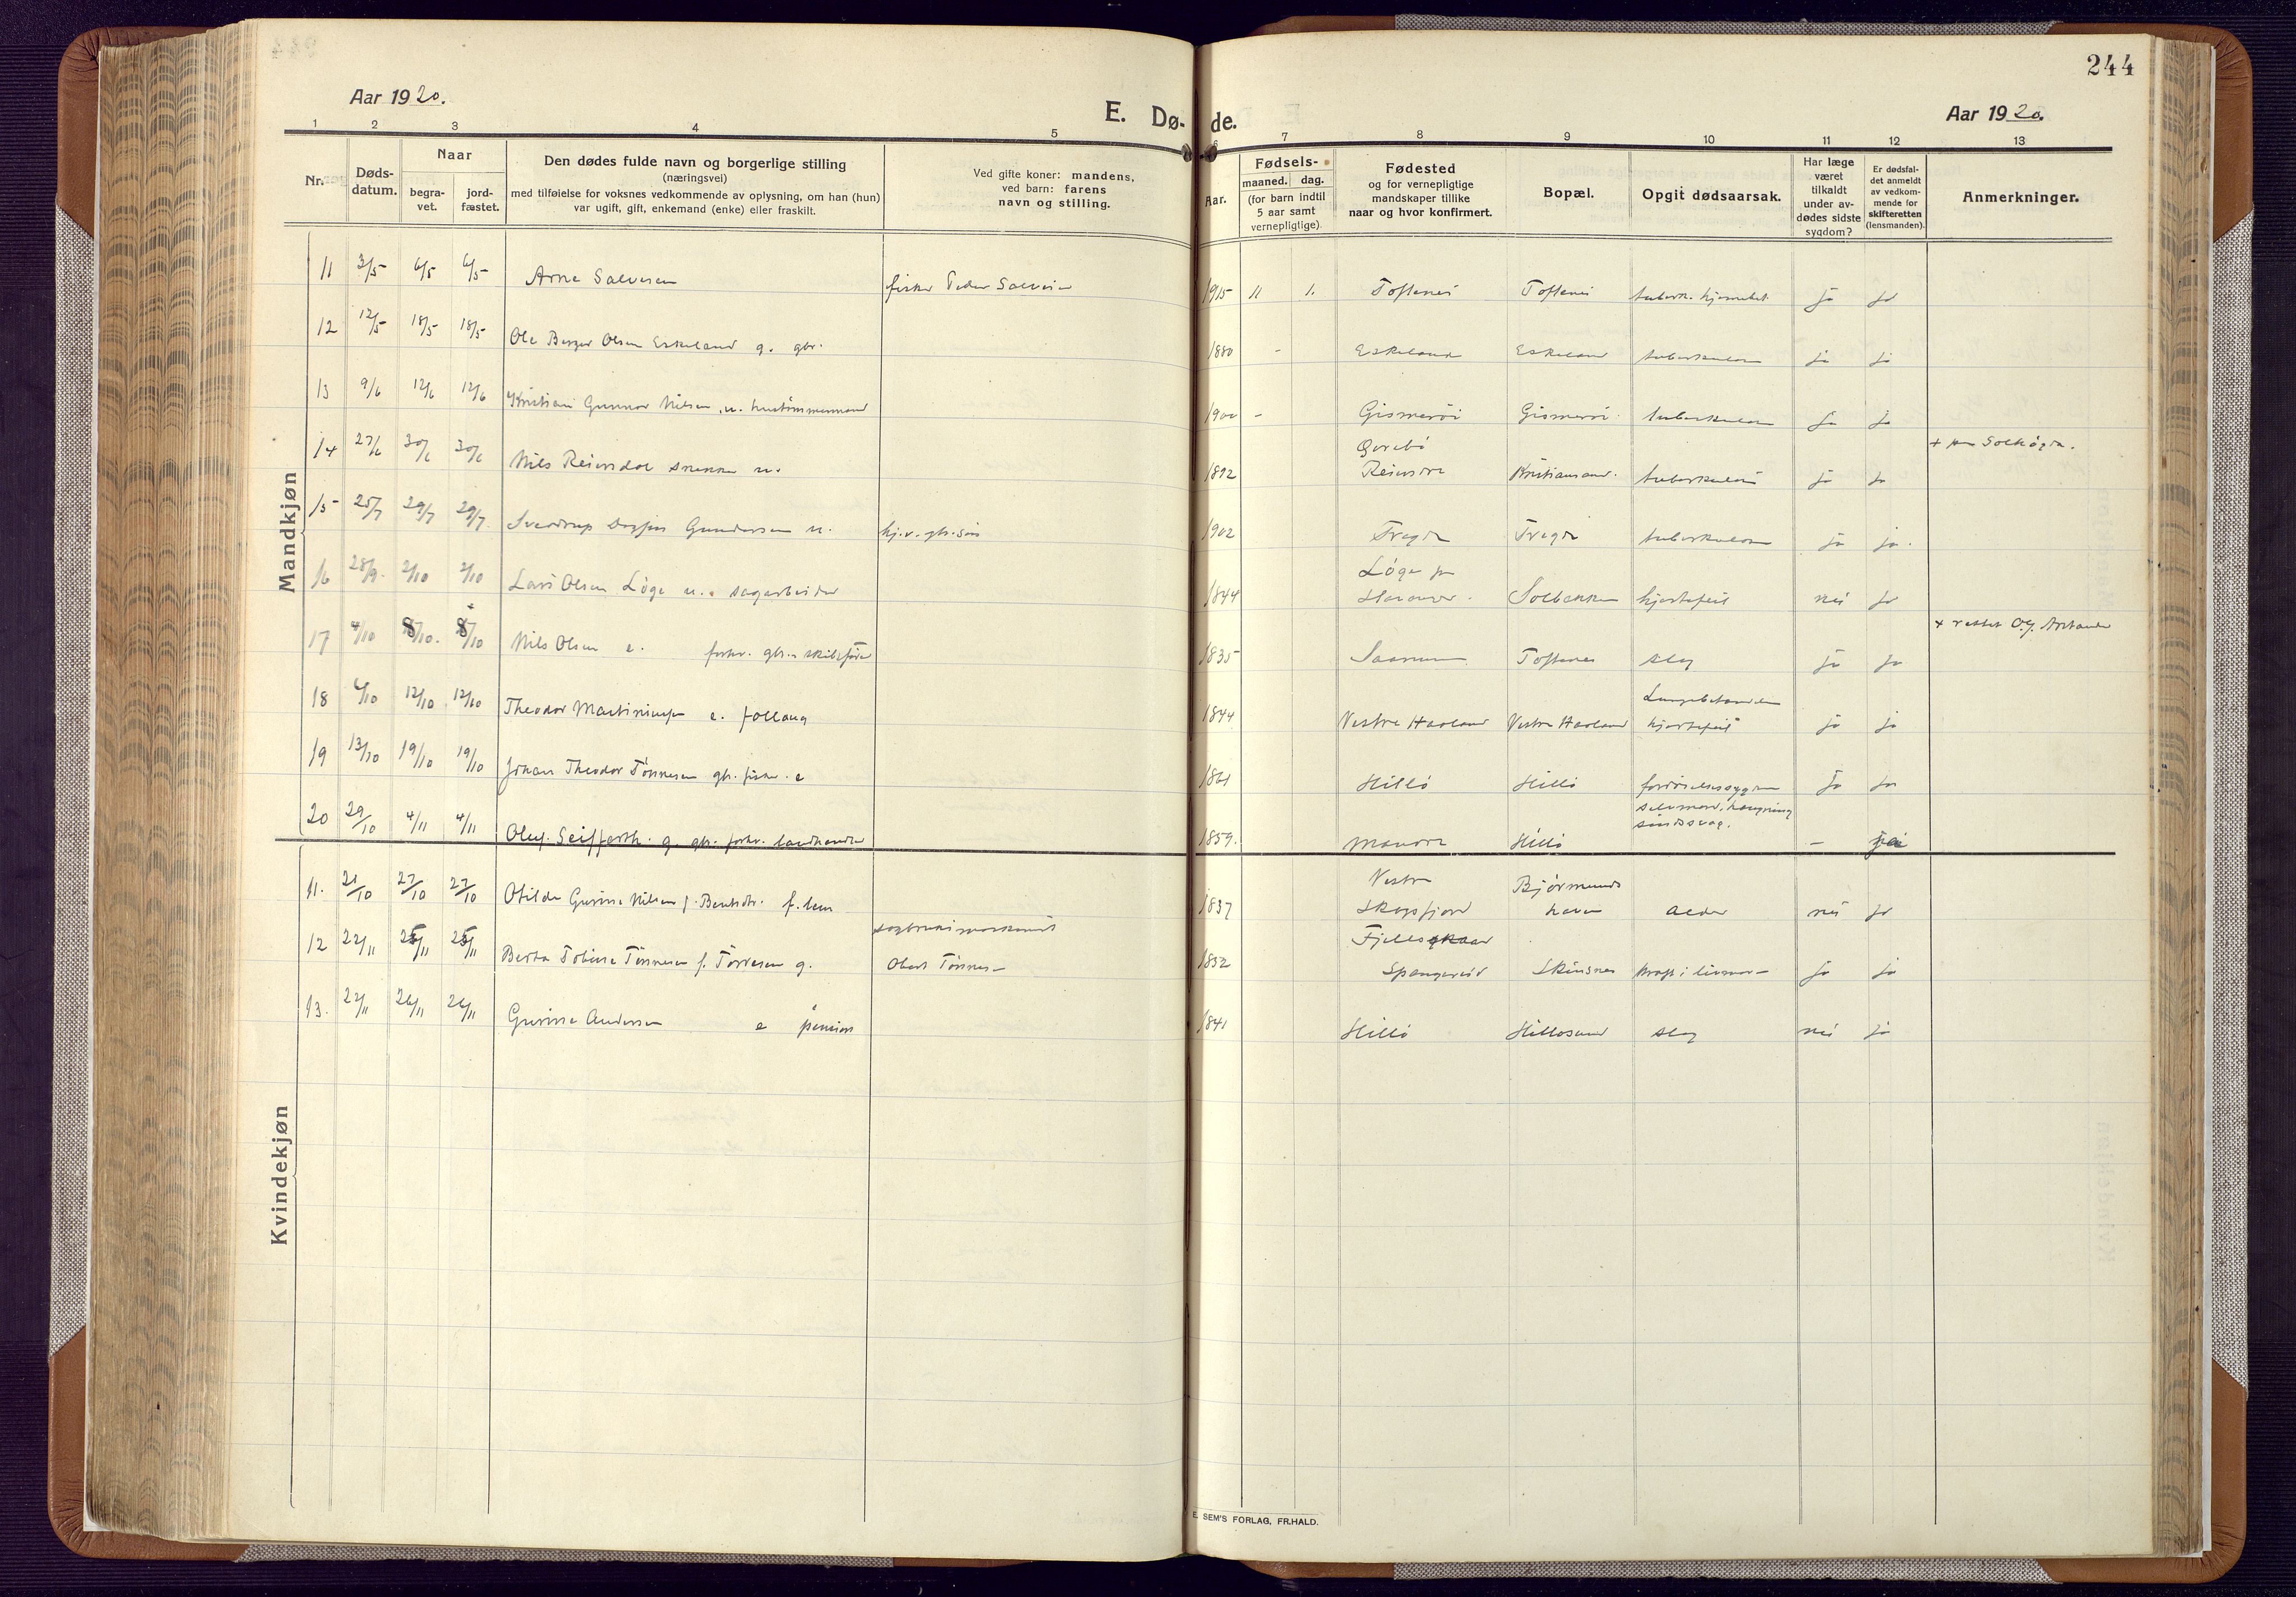 244
Aar 1920.
E. Dø-
de.
Aar 1920.
1 2 3 4 5 6 7 8 9 10 11 12 13
Nr.
Døds-
datum.
Naar
begra-
vet.
jord-
fæstet.
Den dødes fulde navn og borgerlige stilling
(næringsvei)
med tilføielse for voksnes vedkommende av oplysning, om han (hun)
var ugift, gift, enkemand (enke) eller fraskilt.
Ved gifte koner: mandens,
ved barn: farens
navn og stilling.
Aar.
Fødsels-
maaned. dag.
(for barn indtil
5 aar samt
vernepligtige)
Fødested
og for vernepligtige
mandskaper tillike
naar og hvor konfirmert.
Bopæl.
Opgit dødsaarsak.
Har læge
været
tilkaldt
under av-
dødes sidste
sygdom?
Er dødsfal-
det anmeldt
av vedkom-
mende for
skifteretten
(lensmanden).
Anmerkninger.
Mandkjøn
11 3/5 6/5 6/5 Arne Salvesen fisker Peder Salvesen 1915 11 1. Toftenes Toftenes tuberk. hjernebet. ja ja
12 12/5 18/5 18/5 Ole Berger Olsen Eskeland g. gbr. 1880 - Eskeland Eskeland tuberkulose ja ja
13 9/6 12/6 12/6 Kristian Gunnar Nilsen u. 1900 - Gismerøi Gismerøi tuberkulose ja ja
14 27/6 30/6 30/6 Nils Reiersdal snekker u. 1892 Øvrebø
Reiersdal Kristiansand. tuberkulose ja ja + paa Solhøgda.
15 25/7 29/7 29/7 Sverdrup Dagfin Gundersen u. hj.v. gbr. søn 1902 Tregde Tregde tuberkulose ja ja.
16 28/9. 2/10 2/10 Lars Olsen Løge u. sagarbeider 1844 Løge
Solbakken hjertefeil nei ja
17 4/10 8/10. 8/10 Nils Olsen e. forhv. gbr. skibsfører 1835 Saanum Toftenes slag ja ja
18 6/10 12/10 12/10 Theodor e. 1844 Vestre Haaland Vestre Haaland Lungebetændelse
hjertefeil ja ja
19 13/10 19/10 19/10 Johan Theodor Tønnesen gbr. fisker. e 1861 Hillø Hillø ja ja
20 29/10 4/11 4/11 Oluf Seiffarth. g. gbr. forhv. landhandler 1859. Mandal Hillø selvmord, hængning
sindssvag. -
Kvindekjøn
11. 21/10 27/10 27/10 Otilde Gurine Nilsen f. Bentsdtr. 1837 Vestre
Skogsfjord Bjørmunds
havn alder nei ja
12 22/11 25/11 25/11 Berta Tobine Tønnesen f. Torresen g. sagbruksmaskinist
Obert Tønnesen 1852 Fjeldskaar
Spangereid Skinsnes kræft i livmor- ja ja
13. 22/11 26/11 26/11 Gurine Andersen e pension 1841 Hillø Hillesund slag nei ja
E. SEM'S FORLAG, FR.HALD.